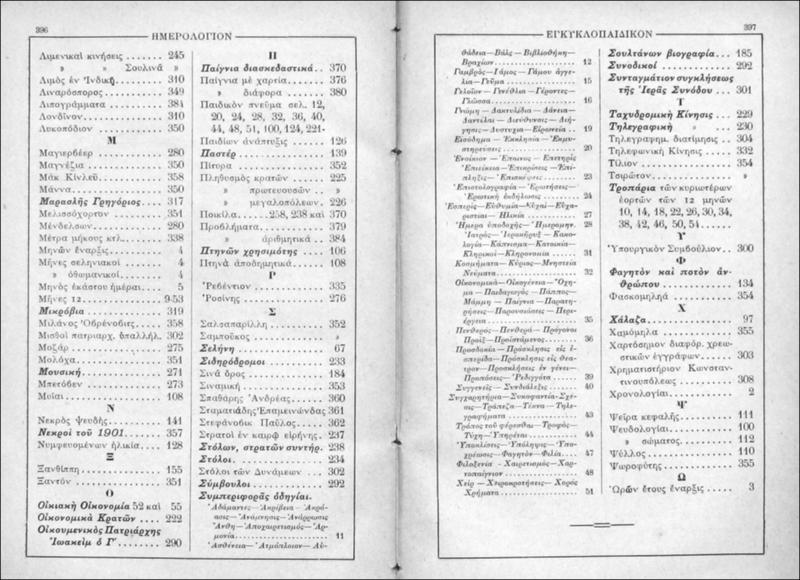 396
ΗΜΕΡΟΛΟΓΙΟΝ
Λιμενικαὶ κινήσεις 245
» » Σουλινᾶ »
Λιμὸς ἐν Ἰνδικῇ 310
Λιναρόσπορος 349
Λιπογράμματα 384
Λονδῖνον 310
Λυκοπόδιον 350
Μ
Μαγιερβέερ 280
Μαγνέζια 350
Μὰκ Κίνλεϋ 358
Μάννα 350
Μαρασλῆς Γρηγόριος 317
Μελισσόχορτον 351
Μένδελσων 280
Μέτρα μήκους κτλ. 338
Μηνῶν ἔναρξις 4
Μῆνες σεληνιακοί 4
» ὀθωμανικοί 4
Μηνὸς ἑκάστου ἡμέραι 5
Μῆνες 12 9-53
Μικρόβια 319
Μιλάνος Ὀβρένοβιτς 358
Μισθοὶ πατριαρχ. ὑπαλλήλ. 302
Μοζάρ 275
Μολόχα 351
Μουσική 271
Μπετόβεν 273
Μυῖαι 108
Ν
Νεκρὸς ψευδής 141
Νεκροὶ τοῦ 1901 357
Νυμφευομένων ἡλικία 128
Ξ
Ξανθίππη 155
Ξαντόν 351
Ο
Οἰκιακὴ Οἰκονομία 52 καὶ 55
Οἰκονομικὰ Κρατῶν 222
Οἰκουμενικὸς Πατριάρχης
Ἰωακεὶμ ὁ Γʹ 290
Π
Παίγνια διασκεδαστικά 370
Παίγνια μὲ χαρτία 376
» διάφορα 380
Παιδικὸν πνεῦμα σελ. 12,
20, 24, 28, 32, 36, 40,
44, 48, 51, 100, 124, 221-
Παιδίων ἀνάπτυξις 126
Παστέρ 139
Πίτυρα 352
Πληθυσμὸς κρατῶν 225
» πρωτευουσῶν »
» μεγαλοπόλεων 226
Ποικίλα 258, 238 καὶ 370
Προβλήματα 379
» ἀριθμητικά 384
Πτηνῶν χρησιμότης 106
Πτηνὰ ἀποδημητικά 108
Ρ
Ῥεβέντιον 335
Ῥοσίνης 276
Σ
Σαλσαπαρίλλη 352
Σαμποῦκος »
Σελήνη 67
Σιδηρόδρομοι 233
Σινᾶ ὄρος 184
Σιναμική 353
Σπαθάρης Ἀνδρέας 360
Σταματιάδης Ἐπαμεινώνδας 361
Στεφάνοβικ Παῦλος 362
Στρατοὶ ἐν καιρῷ εἰρήνης 237
Στόλων, στρατῶν συντήρ. 238
Στόλοι 234
Στόλοι τῶν Δυνάμεων 302
Σύμβουλοι 292
Συμπεριφορᾶς ὁδηγίαι.
Ἀδάμαντες—Ἀκρίβεια—Ἀκρό-
ασις—Ἀνάμνησις—Ἀνάρρωσις
Ἄνθη—Ἀποχαιρετισμός—Ἁρ-
μονία 11
Ἀσθένεια—Ἀτμόπλοιον—Αὐ-
ΕΓΚΥΚΛΟΠΑΙΔΙΚΟΝ
397
θάδεια—Βάλς—Βιβλιοθήκη—
Βραχίων 12
Γαμβρός—Γάμος—Γάμου ἀγγε-
λία—Γεῦμα 15
Γελοῖον—Γενέθλια—Γέροντες—
Γλῶσσα 16
Γνώμη—Δακτυλίδια—Δάνεια—
Δαντέλαι—Διεύθυνσις—Διή-
γησις—Δυστυχία—Εἰρωνεία 19
Εἰσόδημα—Ἐκκλησία—Ἐκμυ-
στηρεύσεις 20
Ἐνοίκιον—Ἔπαινος—Ἐπετηρὶς
Ἐπιείκεια—Ἐπικρίσεις—Ἐπί-
πληξις—Ἐπισκέψεις 23
Ἐπιστολογραφία—Ἐρωτήσεις—
Ἐρωτικὴ ἐκδήλωσις 24
Ἑσπερίς—Εὐθυμία—Εὐχαί—Εὐχα-
ριστίαι—Ἡλικία 27
Ἡμέρα ὑποδοχῆς—Ἡμερομην.
Ἰατρός—Ἱεροκῆρυξ—Κακο-
λογία—Κάπνισμα—Κατοικία—
Κληρικοί—Κληρονομία 31
Κοσμήματα—Κύριος—Μνηστεία
Νεύματα 32
Οἰκονομικά—Οἰκογένεια—Ὄχη-
μα—Παιδαγωγός—Πάππος—
Μάμμη—Παίγνια—Παρατη-
ρήσεις—Παρουσιάσεις—Περι-
έργεια 35
Πενθερός—Πενθερά—Πρόγονοι
Προίξ—Προϊστάμενος 36
Προσδοκία—Πρόσκλησις εἰς ἑ-
σπερίδα—Πρόσκλησις εἰς Θέα-
τρον—Προσκλήσεις ἐν γένει—
Προπόσεις—Ῥεδιγγότα 39
Συγγενεῖς—Συνδιάλεξις 40
Συγχαρητήρια—Συκοφαντία—Σχέ-
σεις—Τράπεζα—Τέκνα—Τηλε-
γραφήματα 43
Τρόπος τοῦ φέρεσθαι—Τροφός—
Τύχη—Ὑπηρέται 44
Ὑποκλίσεις—Ὑπόληψις—Ὑπο-
χρέωσις—Φαγητόν—Φιλία 47
Φιλοξενία—Χαιρετισμός—Χαρ-
τοπαίγνιον 48
Χείρ—Χειροκροτήσεις—Χορὸς
Χρήματα 51
Σουλτάνων βιογραφία 185
Συνοδικοί 292
Συνταγμάτιον συγκλήσεως
τῆς Ἱερᾶς Συνόδου 301
Τ
Ταχυδρομικὴ Κίνησις 229
Τηλεγραφικὴ » 230
Τηλεγραφημ. διατίμησις 304
Τηλεφωνικὴ Κίνησις 332
Τίλιον 354
Τσιρῶτον »
Τροπάρια τῶν κυριωτέρων
ἑορτῶν τῶν 12 μηνῶν
10, 14, 18, 22, 26, 30, 34,
38, 42, 46, 50, 54
Υ
Ὑπουργικὸν Συμβούλιον 300
Φ
Φαγητὸν καὶ ποτὸν ἀν-
θρώπου 134
Φασκομηληά 354
Χ
Χάλαζα 97
Χαμόμηλα 355
Χαρτόσημον διαφόρ. χρεω-
στικῶν ἐγγράφων 303
Χρηματιστήριον Κωνσταν-
τινουπόλεως 308
Χρονολογίαι 2
Ψ
Ψεῖρα κεφαλῆς 111
Ψευδολογίαι 100
» σώματος 112
Ψύλλος 110
Ψωροφύτης 355
Ω
Ὡρῶν ἔτους ἔναρξις 3